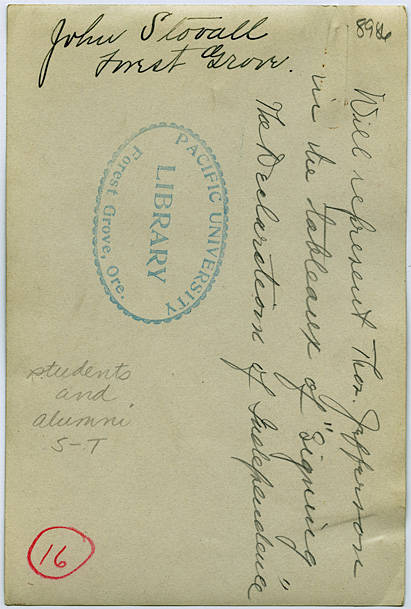 John Stovall
Forest Grove.
898b
Will represent Thos. Jefferson
in the tableaux of "Signing
The Declaration of Independence"
PACIFIC UNIVERSITY
LIBRARY
Forest Grove, Ore.
students
and
alumni
S-T
16